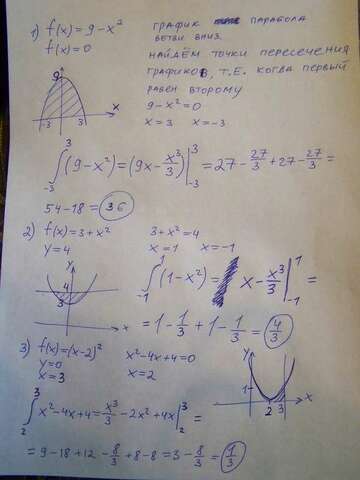 1) f(x)=9-x² график парабола
f(x)=0 ветви вниз.
найдём точки пересечения
графиков, т.е. когда первый
равен второму
9-x²=0
x=3 x=-3
9
-3 3 x
∫₋₃³ (9-x²)=(9x-x³/3)|₋₃³=27-27/3+27-27/3=
54-18=36
2) f(x)=3+x² 3+x²=4
y=4 x=1 x=-1
y
4
3
x
∫₋₁¹ (1-x²)= x-x³/3|₋₁¹=
=1-1/3+1-1/3=4/3
3) f(x)=(x-2)² x²-4x+4=0
y=0 x=2
x=3
y
1
2 3 x
∫₂³ x²-4x+4=x³/3-2x²+4x|₂³=
=9-18+12-8/3+8-8=3-8/3=1/3